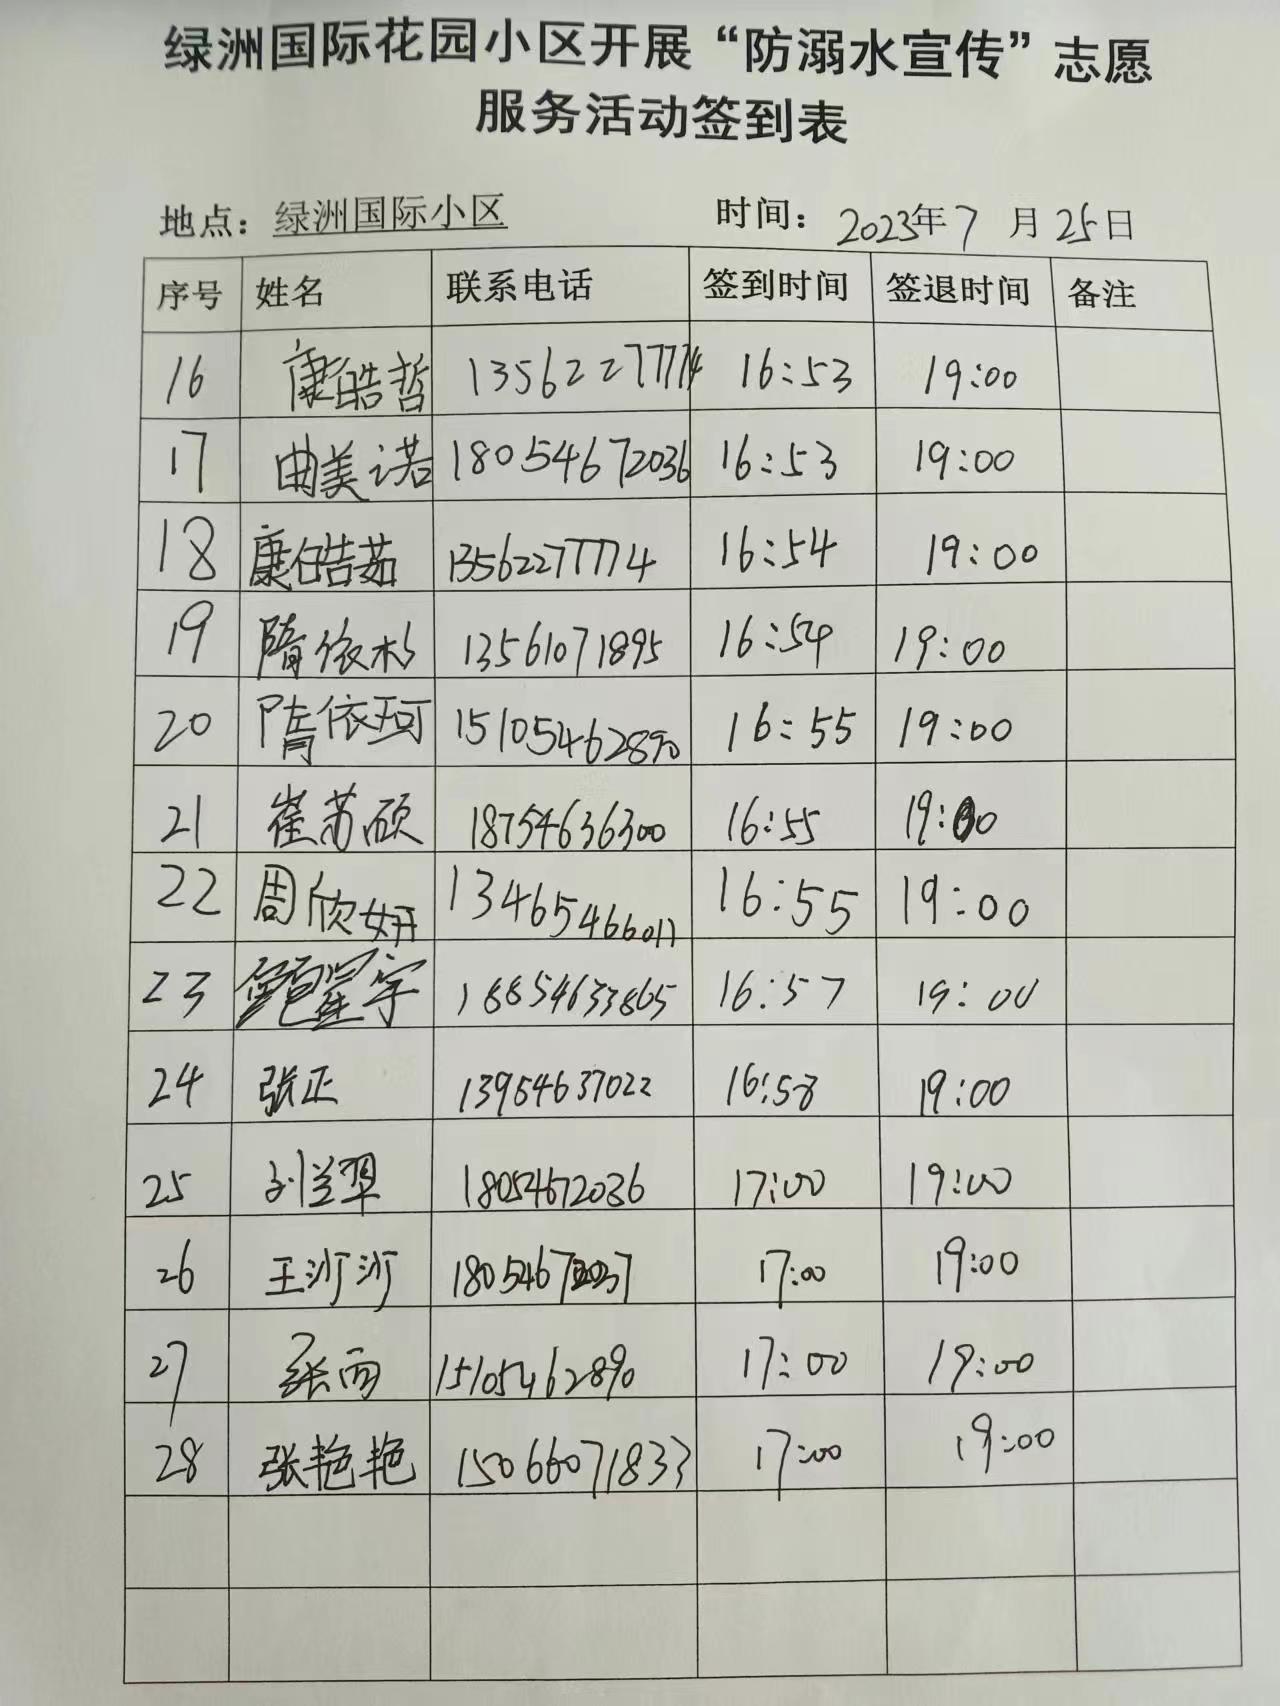 绿洲国际花园小区开展“防溺水宣传”志愿
服务活动签到表
地点：绿洲国际小区 时间：2023年7月25日
序号 姓名 联系电话 签到时间 签退时间 备注
16 康皓哲 13562277774 16:53 19:00
17 曲美诺 18054672036 16:53 19:00
18 康皓茹 13562277774 16:54 19:00
19 隋依杉 13561071895 16:54 19:00
20 隋依珂 15105462890 16:55 19:00
21 崔苏硕 18754636300 16:55 19:00
22 周欣妍 13465466011 16:55 19:00
23 宇 18854633865 16:57 19:00
24 张正 13954637022 16:58 19:00
25 刘兰翠 18054672036 17:00 19:00
26 王沙沙 17:00 19:00
27 张雨 15105462890 17:00 19:00
28 张艳艳 15066071833 17:00 19:00